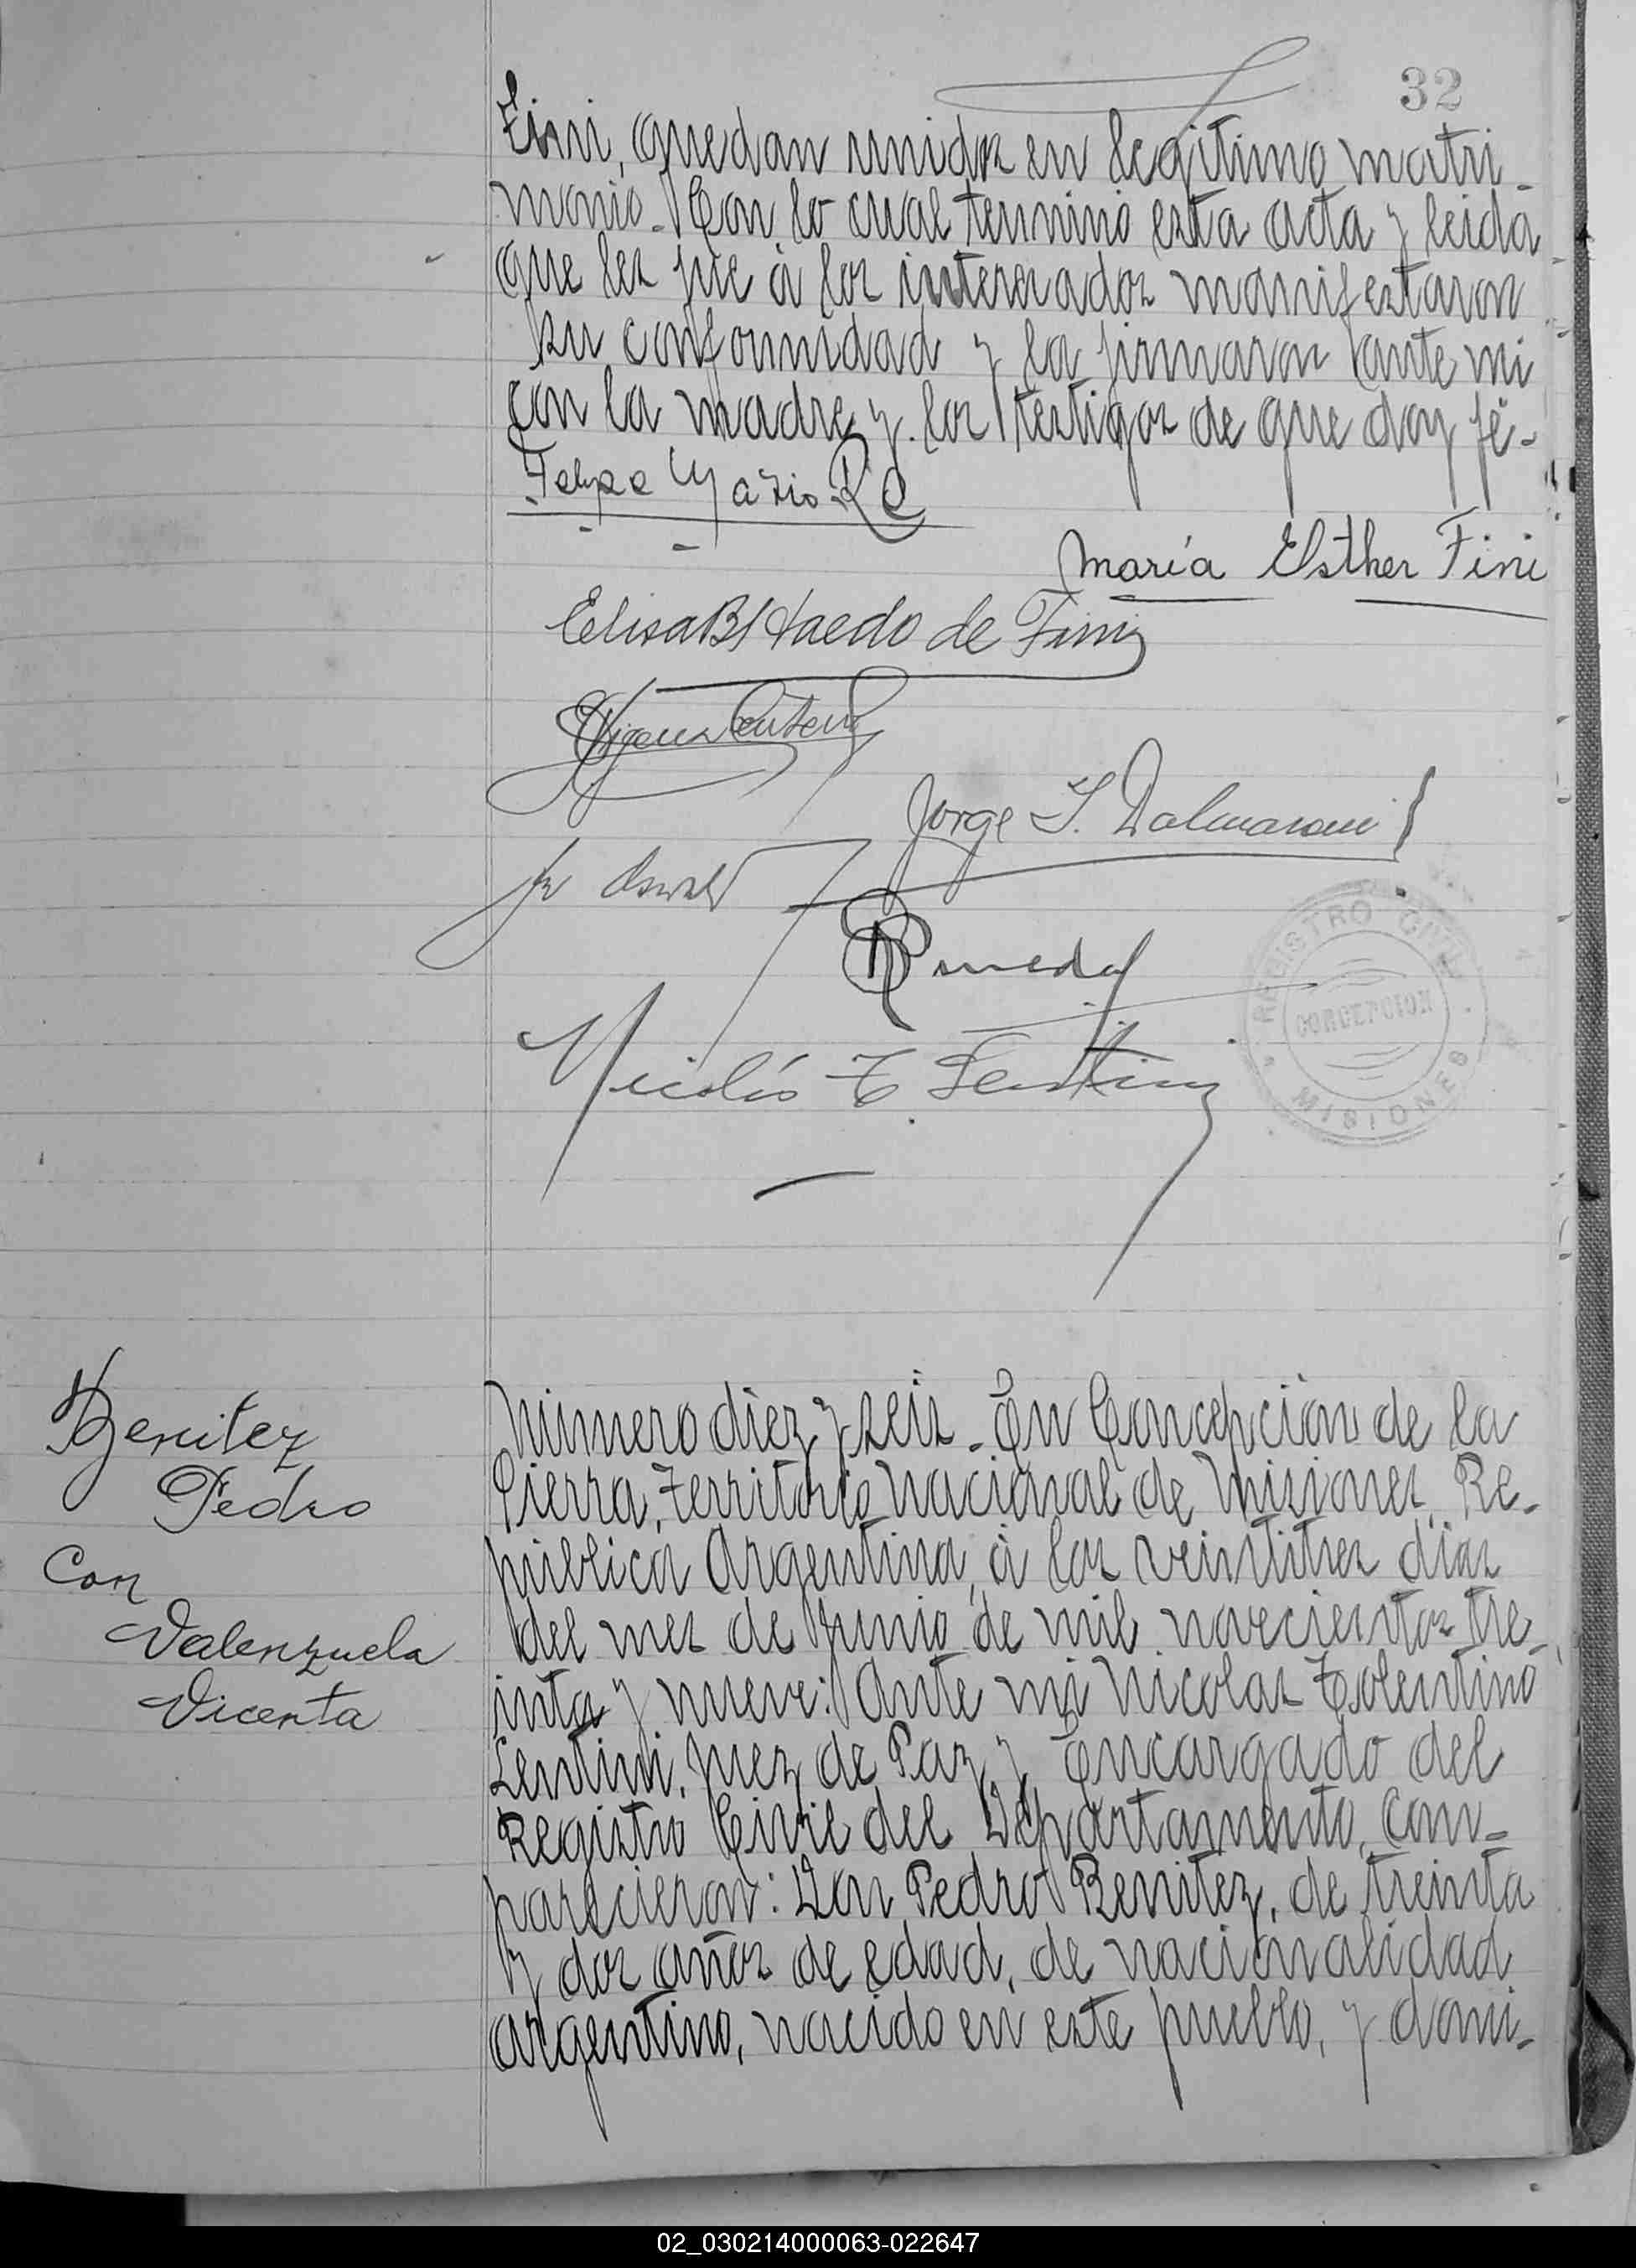 32
Fini, quedan unidos en legitimo matri-
monio. Con lo cual terminó esta acta y leida
que les fue á los interesados manifestaron
su conformidad y la firmaron ante mi
con la madre y los testigos de que doy fé.-
Felipe
María Esther Fini
Elisa B Haedo de Fini
Jorge I. Dalmaroni
Oswald
Nicolás T. Lentini
REGISTRO CIVIL
CONCEPCION
MISIONES
Benitez
Pedro
Con
Valenzuela
Vicenta
Número diez y seis. En Concepción de la
Sierra, Territorio Nacional de Misiones, Re-
pública Argentina, á los veintitres dias
del mes de Junio de mil novecientos tre-
inta y nueve: Ante mi Nicolas Tolentino
Lentini, Juez de Paz y Encargado del
Registro Civil del Departamento, com-
parecieron: Don Pedro Benitez, de treinta
y dos años de edad, de nacionalidad
argentino, nacido en este pueblo, y domi-
02_030214000063-022647